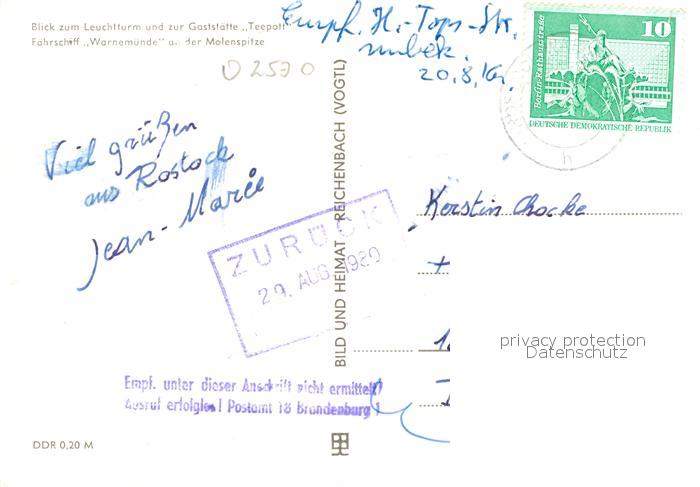 Blick zum Leuchtturm und zur Gaststätte „Teepott"
Fährschiff „Warnemünde" an der Molenspitze
Empf. H.-Tops-Str.
unbek.
20.8. Kr.
10
Berlin-Rathausstraße
DEUTSCHE DEMOKRATISCHE REPUBLIK
h
Viel grüßen
aus Rostock
Jean-Marie
BILD UND HEIMAT REICHENBACH (VOGTL)
Kerstin Chocke
ZURÜCK
29. AUG. 1980
privacy protection
Datenschutz
Empf. unter dieser Anschrift nicht ermittelt!
Ausruf erfolglos! Postamt 18 Brandenburg 1
DDR 0,20 M